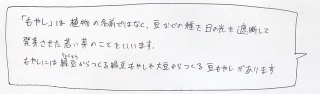 「もやし」は 植物の名前ではなく、豆などの種を日の光を遮断して
発芽させた若い芽のことをいいます。
もやしには緑豆からつくる緑豆もやしや大豆からつくる 豆もやしがあります